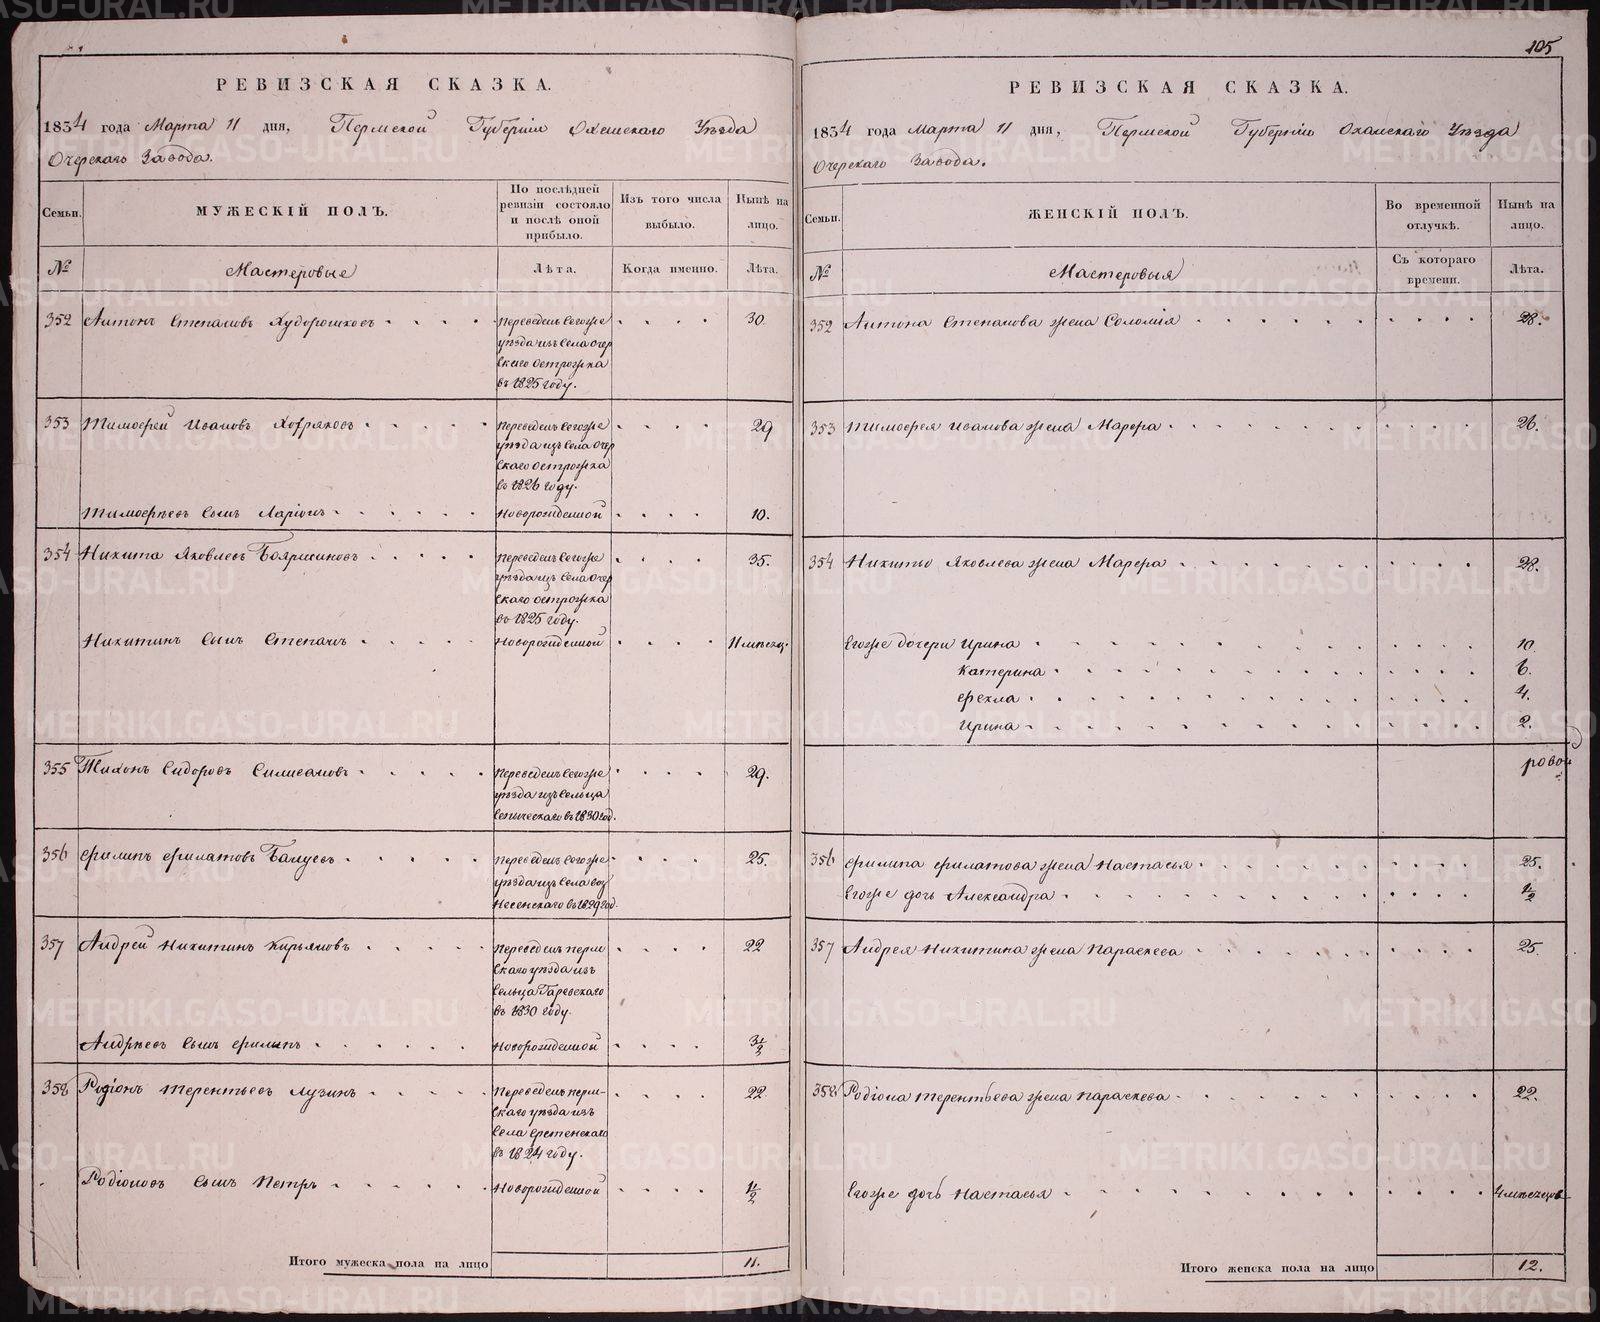 105
РЕВИЗСКАЯ СКАЗКА.
1834 года Марта 11 дня, Пермской Губерніи Оханскаго Уѣзда
Очерскаго Завода.
Семьи.
МУЖЕСКІЙ ПОЛЪ.
По послѣдней
ревизіи состояло
и послѣ оной
прибыло.
Изъ того числа
выбыло.
Нынѣ на
лицо.
№
Мастеровые
Лѣта.
Когда именно.
Лѣта.
352 Антонъ Степановъ Худорошковъ 30.
Переведенъ сегоже
уѣзда изъ села Очер
скаго острожка
въ 1825 году.
353 Тимофей Ивановъ Хофряковъ 29
Переведенъ сегоже
уѣзда изъ села Очер
скаго острожка
въ 1826 году.
Тимофѣевъ сынъ Ларіонъ Новорожденной 10.
354 Никита Яковлевъ Бояршиновъ 35.
Переведенъ сегоже
уѣзда изъ села Очер
скаго острожка
въ 1825 году.
Никитинъ сынъ Степанъ Новорожденной 11 мѣсец.
355 Тихонъ Сидоровъ 29.
Переведенъ сегоже
уѣзда изъ сельца
Сепическаго въ 1830 год.
356 Филипъ Филатовъ 25.
Переведенъ сегоже
уѣзда изъ села Воз
несенскаго въ 1829 год.
357 Андрей Никитинъ Кирьяновъ 22
Переведенъ перм
скаго уѣзда изъ
сельца Гаревскаго
въ 1830 году.
Андрѣевъ сынъ Филипъ Новорожденной
358 Родіонъ Терентьевъ Лузинъ 22
Переведенъ перм-
скаго уѣзда изъ
села
въ 1824 году.
Родіоновъ сынъ Петръ Новорожденной 1/2
Итого мужеска пола на лицо 11.
РЕВИЗСКАЯ СКАЗКА.
1834 года Марта 11 дня, Пермской Губерніи Оханскаго Уѣзда
Очерскаго Завода.
Семьи.
ЖЕНСКІЙ ПОЛЪ.
Во временной
отлучкѣ.
Нынѣ на
лицо.
№
Мастеровыя
Съ котораго
времени.
Лѣта.
352 Антона Степанова жена Соломія 28.
353 Тимофея Иванова жена Марфа 26.
354 Никиты Яковлева жена Марфа 28.
Егоже дочери Ирина 10
Катерина 6.
Фекла 4.
Ирина 2.
356 Филипа Филатова жена Настасья 25.
Егоже дочь Александра 1/2
357 Андрея Никитина жена Параскева 25
358 Родіона Терентьева жена Параскева 22.
Егоже дочь Настасья 4 мѣсецов
Итого женска пола на лицо 12.
METRIKI.GASO-URAL.RU